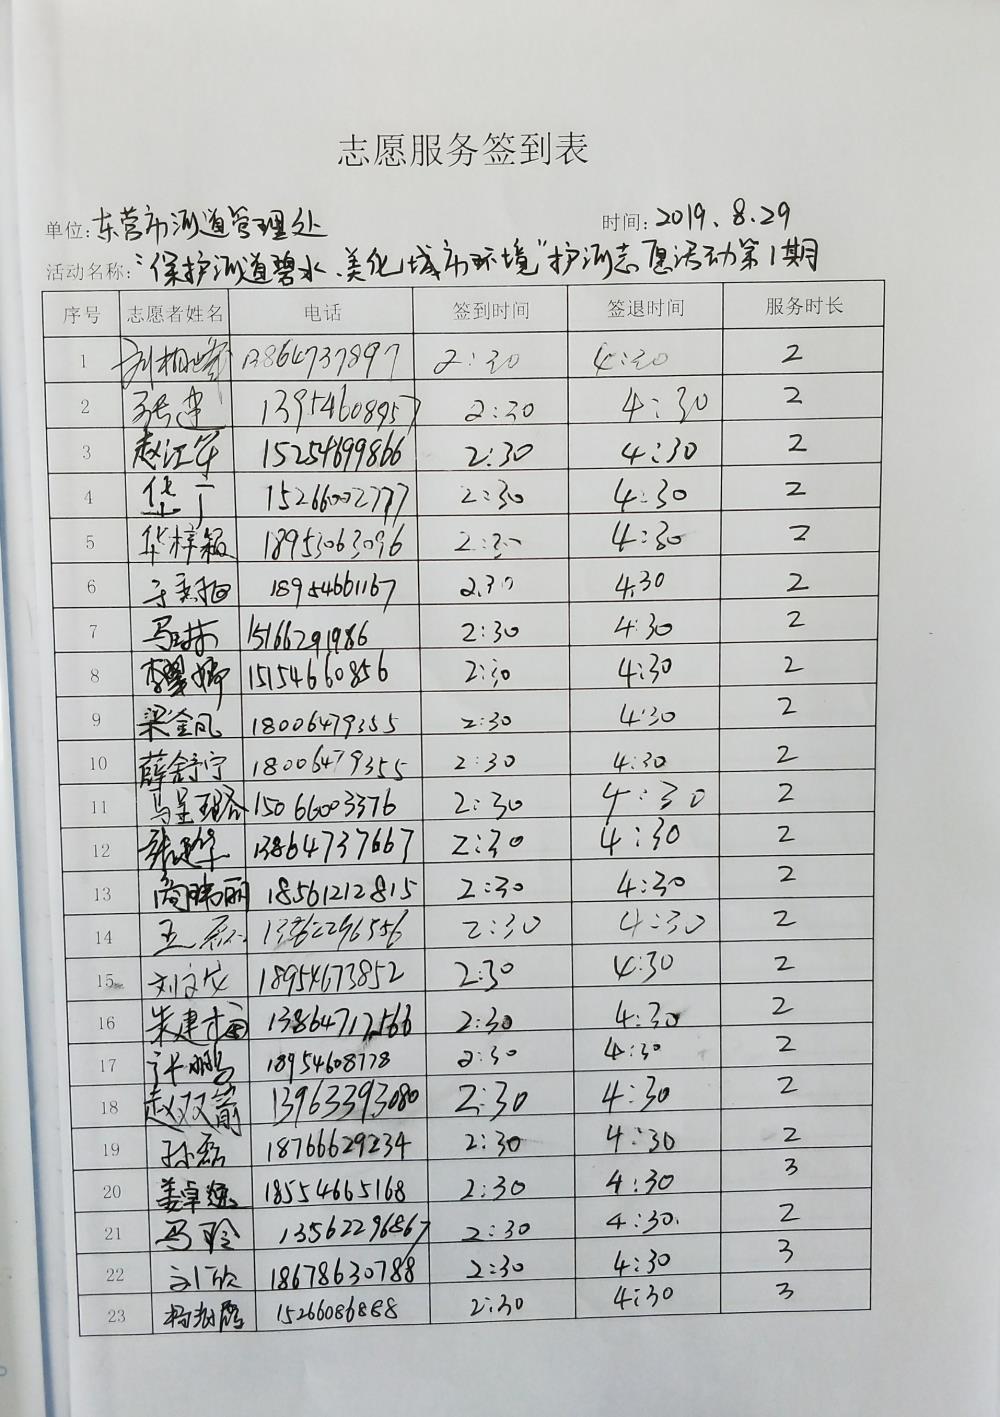 志愿服务签到表
单位:东营市河道管理处 时间:2019.8.29
活动名称:"保护河道碧水、美化城市环境"护河志愿活动第1期
序号 志愿者姓名 电话 签到时间 签退时间 服务时长
1 13864737897 2:30 4:30 2
2 张建 13954608957 2:30 4:30 2
3 赵江军 15254699866 2:30 4:30 2
4 华丁 15266002777 2:30 4:30 2
5 华梓颖 18953063096 2:30 4:30 2
6 18954661167 2:30 4:30 2
7 马琳 15166291986 2:30 4:30 2
8 李翠娜 15154660856 2:30 4:30 2
9 梁金凤 18006479355 2:30 4:30 2
10 薛舒宁 18006479355 2:30 4:30 2
11 马呈瑶 15066003376 2:30 4:30 2
12 张建华 13864737667 2:30 4:30 2
13 周玮丽 18561212815 2:30 4:30 2
14 王 2:30 4:30 2
15 刘文成 18954673852 2:30 4:30 2
16 朱建 13864712566 2:30 4:30 2
17 许鹏 18954608778 2:30 4:30 2
18 赵双箭 13963393080 2:30 4:30 2
19 孙磊 18766629234 2:30 4:30 2
20 姜卓 18554665168 2:30 4:30 3
21 马玲 13562296867 2:30 4:30 2
22 刘欣 18678630788 2:30 4:30 3
23 杨 15266086888 2:30 4:30 3